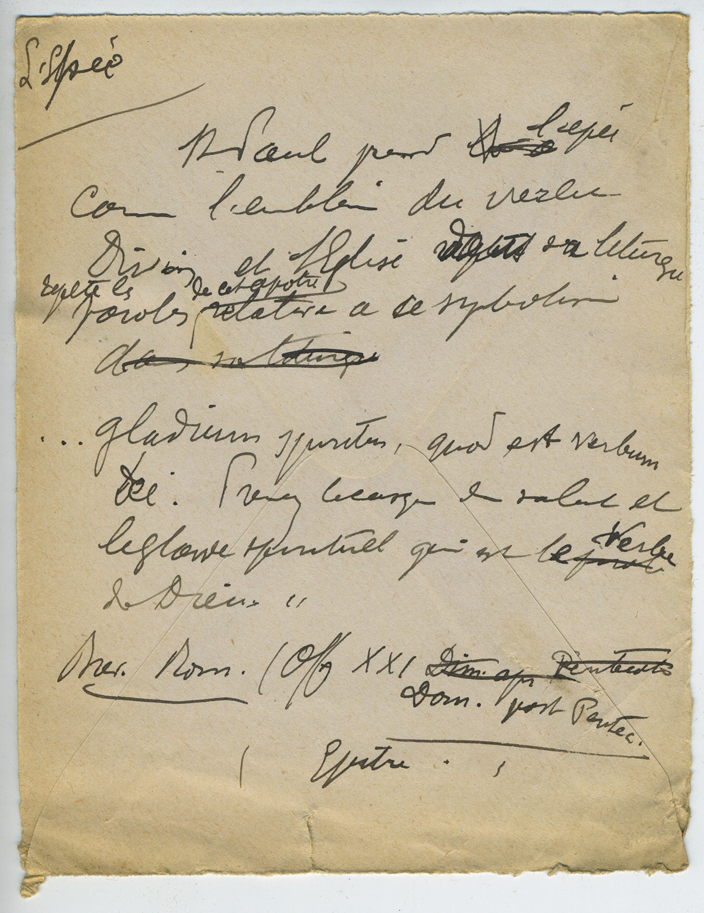 L'Epée
St Paul prend l'epée
comme l'emblème du verbe
Divin et l'Eglise dans sa liturgie
repete les de cet apotre
paroles relative a ce symbolisme
dans sa liturgie
... gladium spiritus, quod est verbum
Dei. Prenez le casque du salut et
le glaive spirituel qui est le Verbe
de Dieu. "
Brev. Rom. (Off XXI Dim. apr Pentecote
Dom. post Pentec.
( Epitre . )